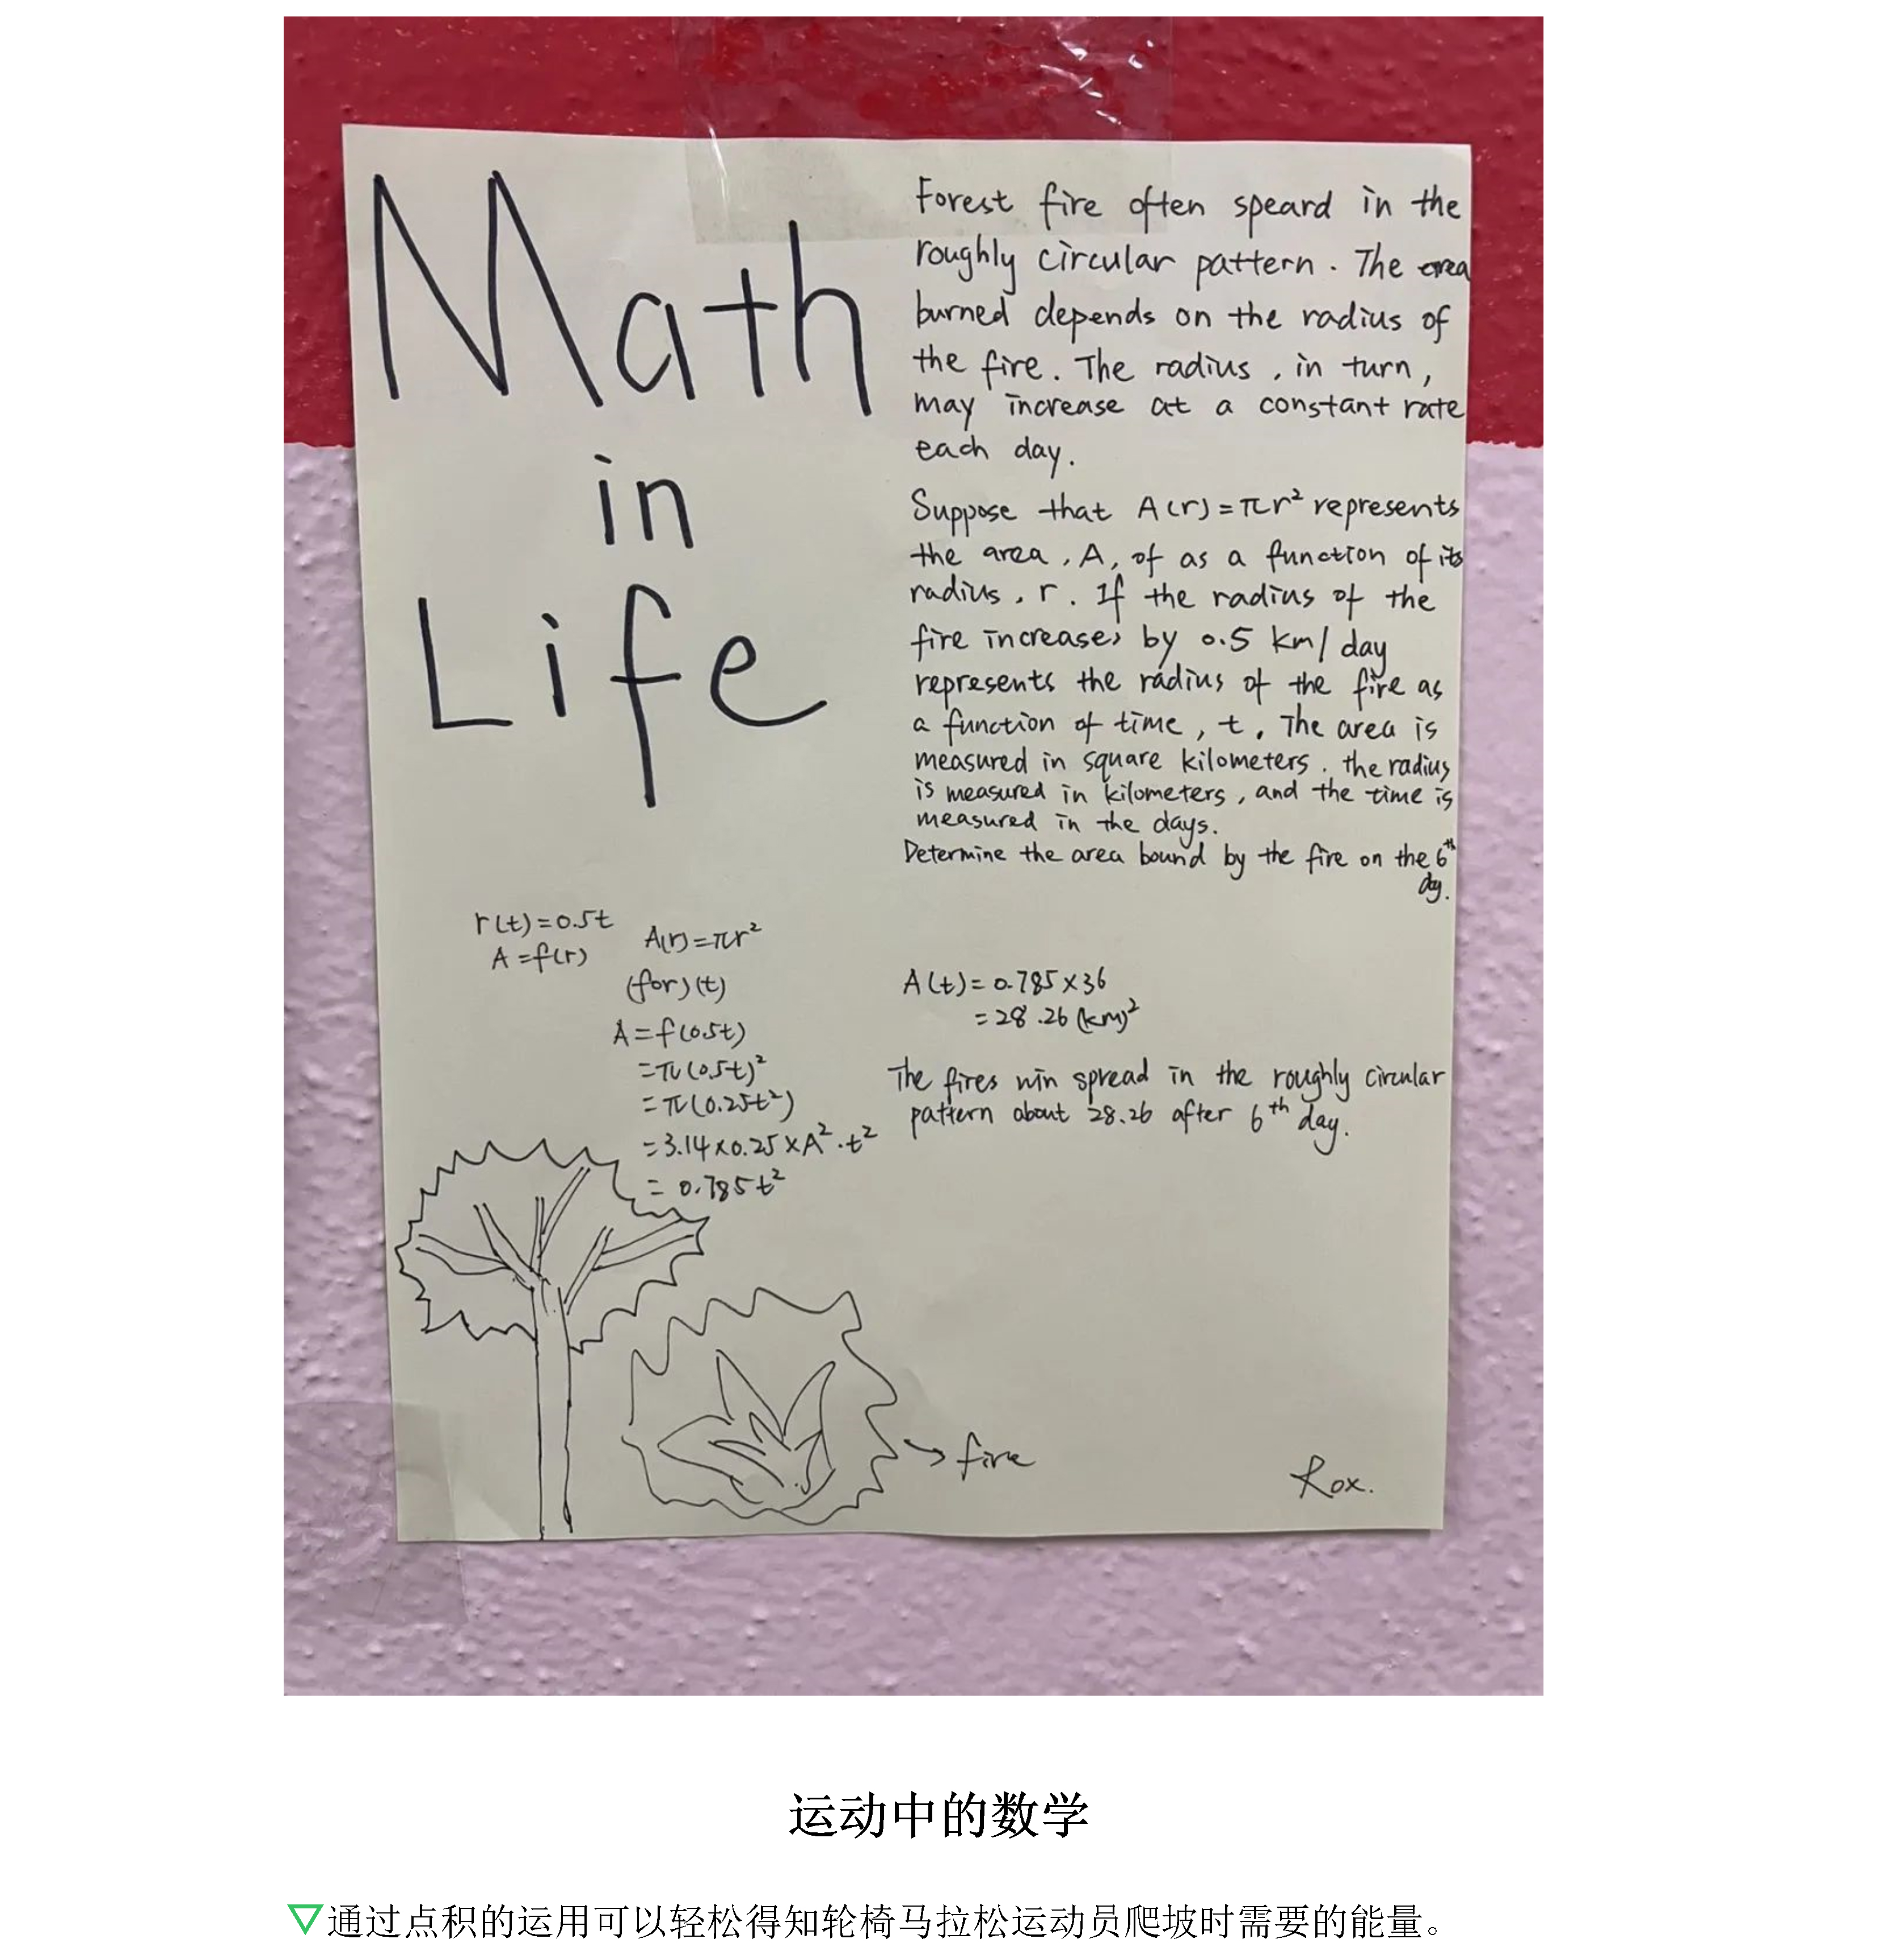 Math
in
Life
Forest fire often speard in the
roughly circular pattern. The area
burned depends on the radius of
the fire. The radius, in turn,
may increase at a constant rate
each day.
Suppose that A(r)=πr² represents
the area, A, of as a function of its
radius, r. If the radius of the
fire increases by 0.5 km/day
represents the radius of the fire as
a function of time, t. The area is
measured in square kilometers. the radius
is measured in kilometers, and the time is
measured in the days.
Determine the area bound by the fire on the 6th
day.
r(t)=0.5t
A=f(r)
A(r)=πr²
(for)(t)
A=f(0.5t)
=π(0.5t)²
=π(0.25t²)
=3.14×0.25×A²·t²
=0.785t²
A(t)=0.785×36
=28.26(km)²
The fires win spread in the roughly circular
pattern about 28.26 after 6th day.
→fire
Rox.
运动中的数学
▽通过点积的运用可以轻松得知轮椅马拉松运动员爬坡时需要的能量。